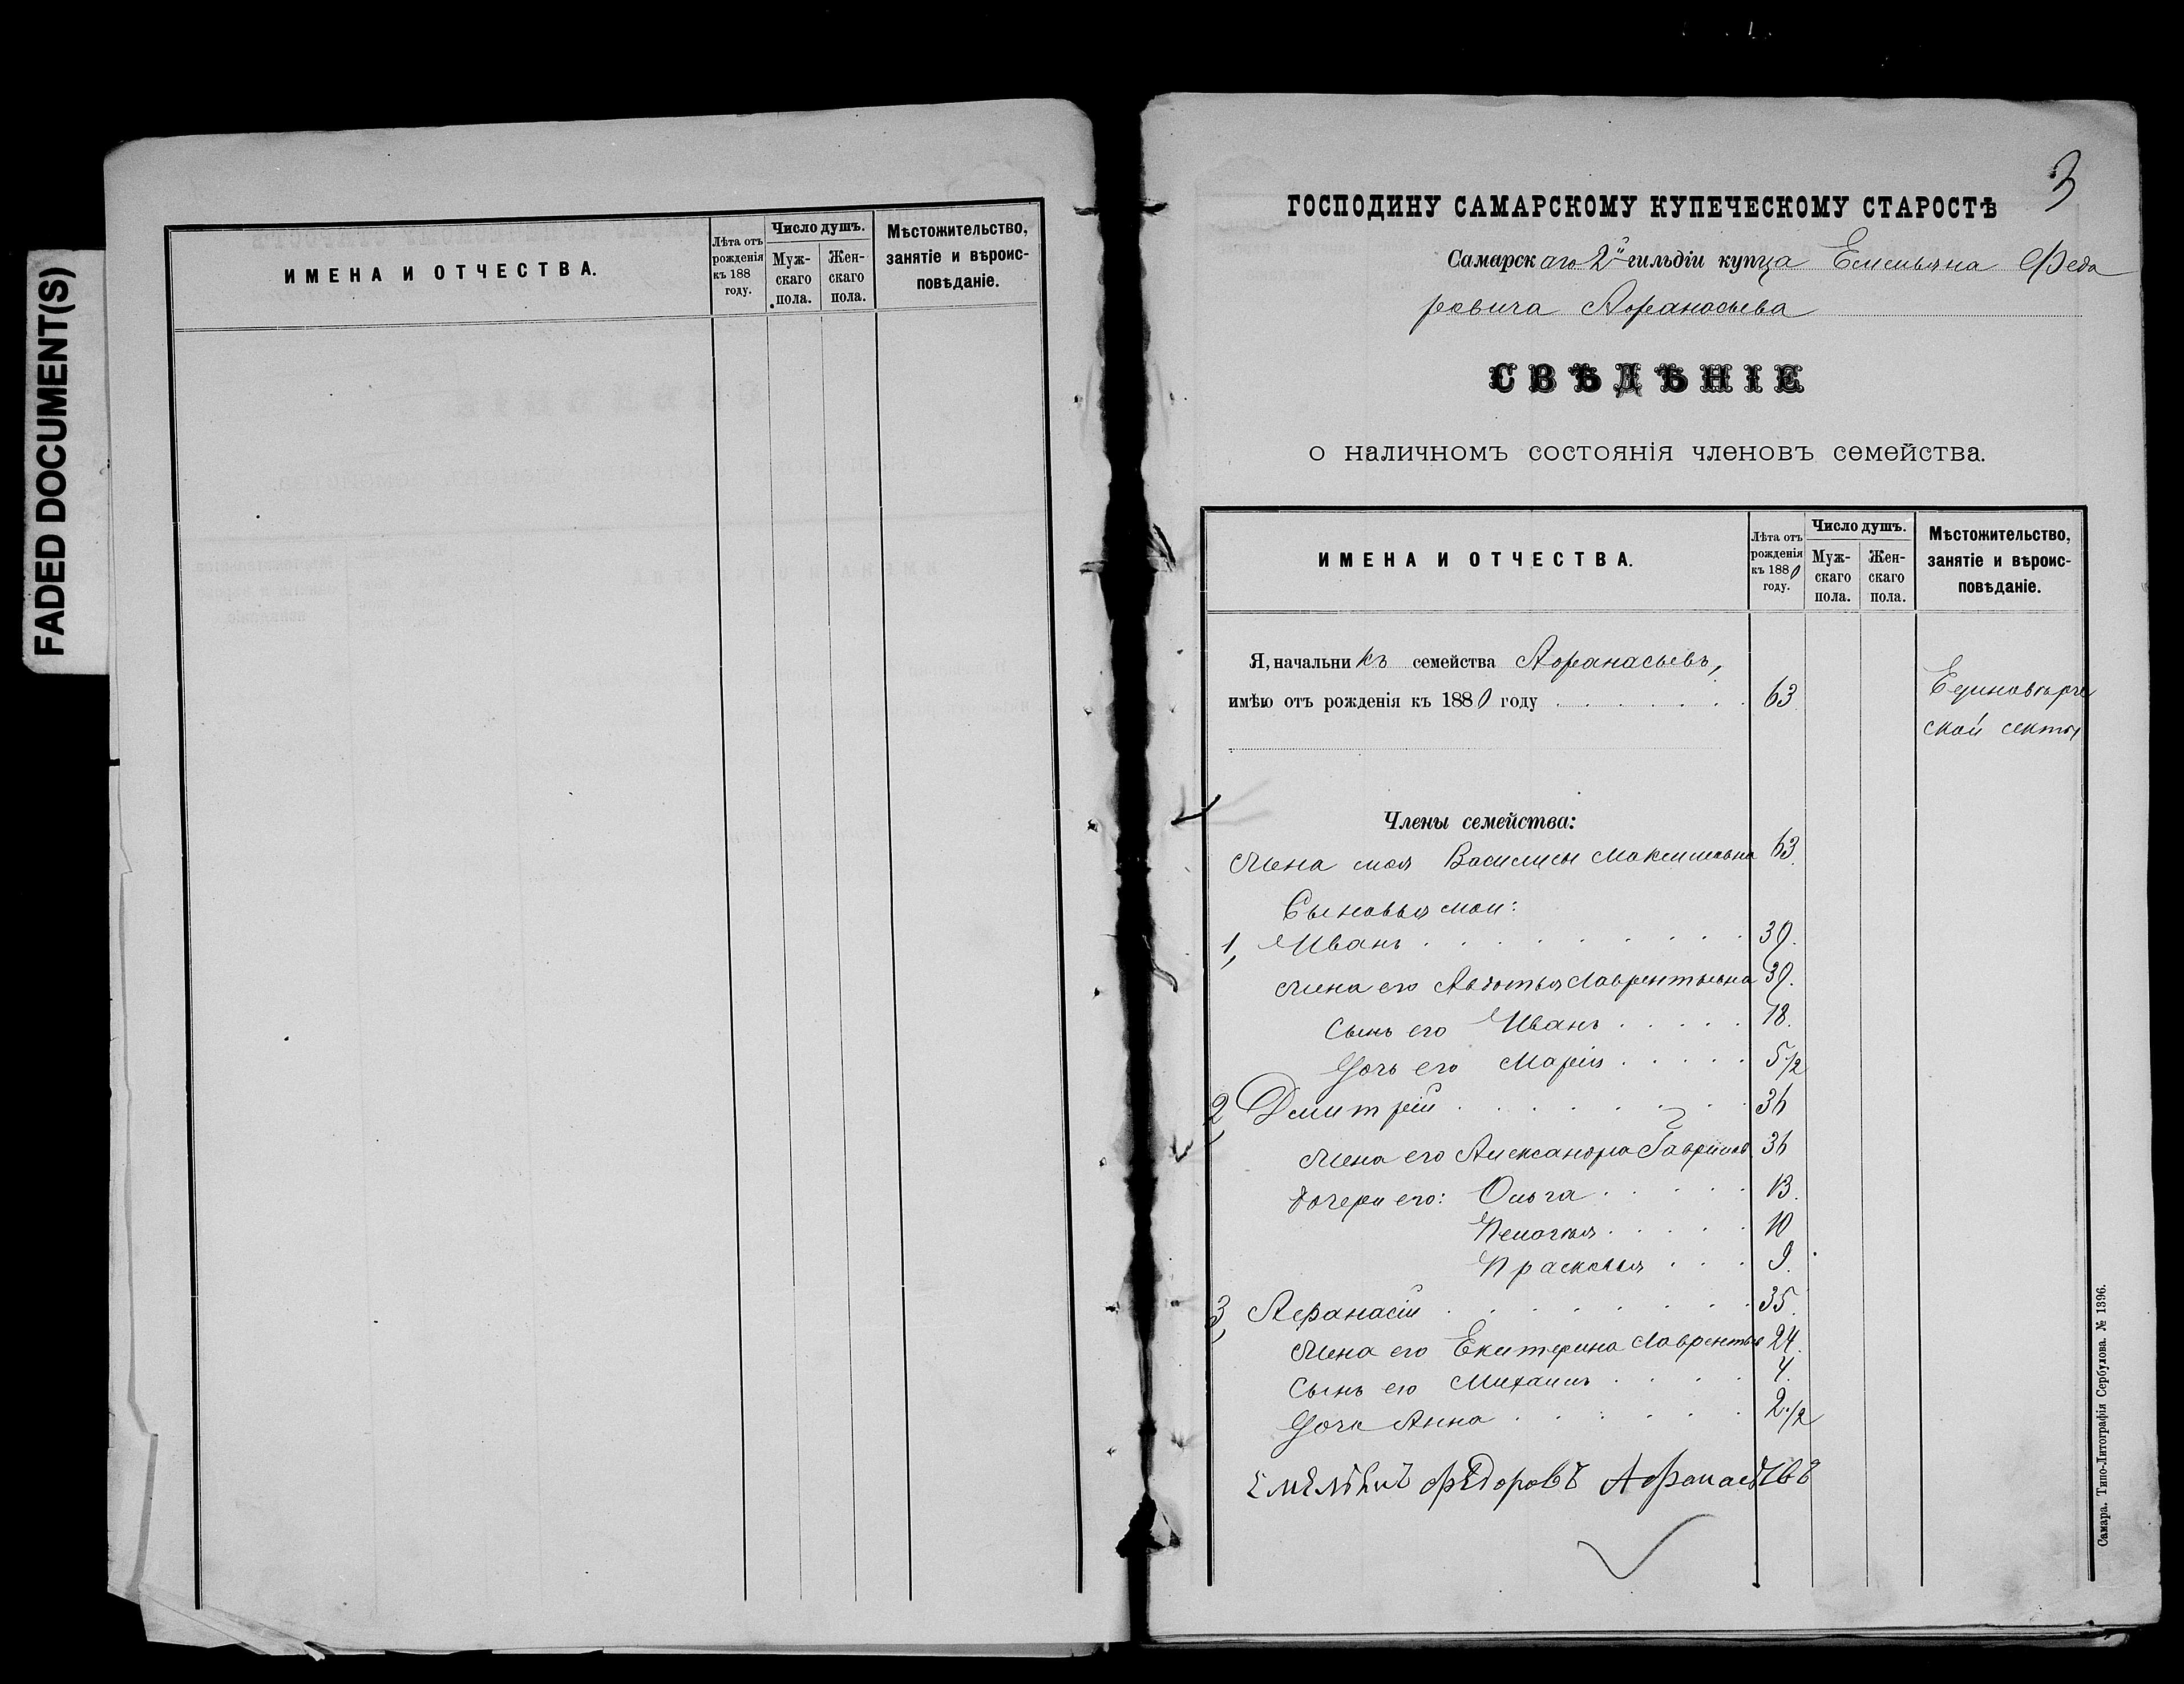 FADED DOCUMENT(S)
ИМЕНА И ОТЧЕСТВА.
Лѣта отъ рожденія къ 188 году.
Число душъ.
Мужскаго пола.
Женскаго пола.
Мѣстожительство, занятіе и вѣроисповѣданіе.
3
ГОСПОДИНУ САМАРСКОМУ КУПЕЧЕСКОМУ СТАРОСТѢ
Самарскаго 2й гильдіи купца Емельяна Федо
ровича Афанасьева
СВѢДѢНІЕ
о наличномъ состоянія членовъ семейства.
ИМЕНА И ОТЧЕСТВА.
Лѣта отъ рожденія къ 1880 году.
Число душъ.
Мужскаго пола.
Женскаго пола.
Мѣстожительство, занятіе и вѣроисповѣданіе.
Я, начальникъ семейства Афанасьевъ,
имѣю отъ рожденія къ 1880 году 63
Единовѣрче
ской секты
Члены семейства:
Жена моя Василисы Максимовна 63.
Сыновья мои:
1, Иванъ 39.
Жена его Авдотья Лаврентьевна 39.
Сынъ его Иванъ 18.
Дочь его Марія 5 1/2
2, Дмитрій 36
Жена его Александра Гаврилов. 36
Дочери его: Ольга 13.
Пелагея 10
Прасковья 9.
3, Афанасій 35.
Жена его Екатерина Лаврентье 24.
Сынъ его Михаилъ 4.
Дочь Анна 2 1/2
Емельянъ Федоровъ Афанасьевъ
Самара. Типо-Литографія Сербулова. № 1396.